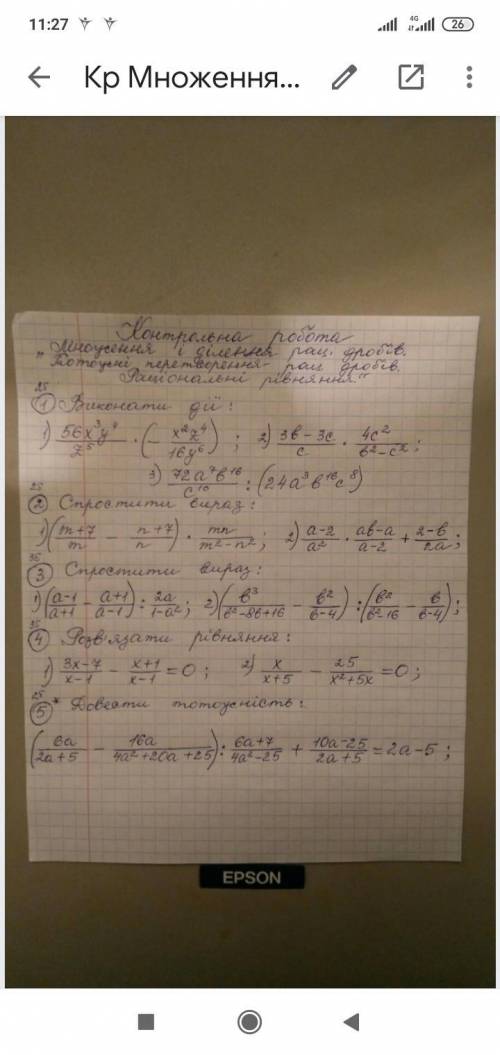 11:27 4G 26
Кр Множення...
Контрольна робота
"Множення і ділення рац. дробів.
Тотожні перетворення рац. дробів.
Раціональні рівняння."
2б
1 Виконати дії:
1) 56x³y⁴/z⁵ · (− x²z⁴/16y⁶); 2) 3b−3c/c · 4c²/b²−c²;
3) 72a⁷b¹⁶/c¹⁰ : (24a³b¹⁶c⁸)
2б
2 Спростити вираз:
1) (m+7/m − n+7/n) · mn/m²−n²; 2) a−2/a² · ab−a/a−2 + 2−b/2a;
3б
3 Спростити вираз:
1) (a−1/a+1 − a+1/a−1) : 2a/1−a²; 2) (b³/b²−8b+16 − b²/b−4) : (b²/b²−16 − b/b−4);
3б
4 Розв'язати рівняння:
1) 3x−7/x−1 − x+1/x−1 = 0; 2) x/x+5 − 25/x²+5x = 0;
2б
5* Довести тотожність:
(6a/2a+5 − 16a/4a²+20a+25) : 6a+7/4a²−25 + 10a−25/2a+5 = 2a−5;
EPSON